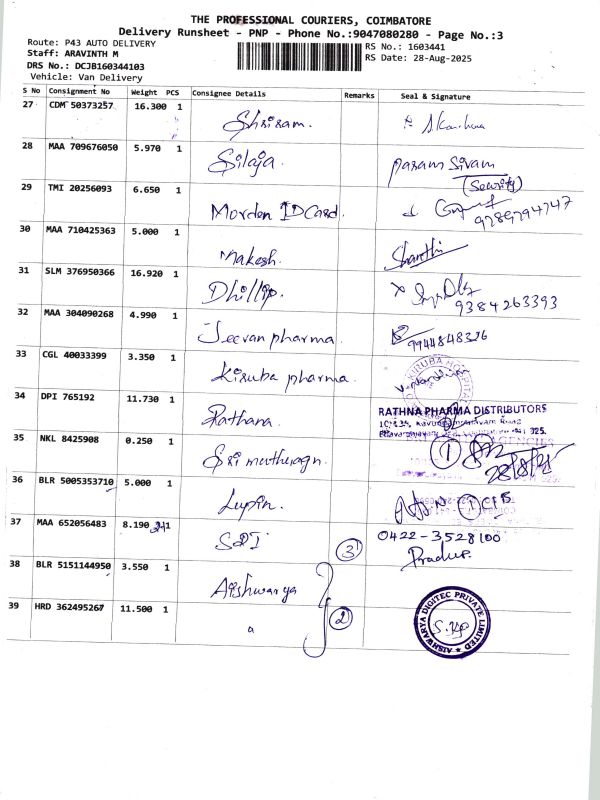 THE PROFESSIONAL COURIERS, COIMBATORE
Delivery Runsheet - PNP - Phone No.:9047080280 - Page No.:3
Route: P43 AUTO DELIVERY
RS No.: 1603441
Staff: ARAVINTH M
RS Date: 28-Aug-2025
DRS No.: DCJB160344103
Vehicle: Van Delivery
S No Consignment No Weight PCS Consignee Details Remarks Seal & Signature
27 CDM 50373257 16.300 1 Shriram.
28 MAA 709676050 5.970 1 Silaja. Param Sivam
(Security)
29 TMI 20256093 6.650 1 Morden ID Card.
30 MAA 710425363 5.000 1 Makesh. Sharethi
31 SLM 376950366 16.920 1 Dhillip.
9384263393
32 MAA 304090268 4.990 1 Jeevan pharma. 9944848326
33 CGL 40033399 3.350 1 Kiruba pharma.
34 DPI 765192 11.730 1 Rathana. RATHNA PHARMA DISTRIBUTORS
35 NKL 8425908 0.250 1 1
28/8/25
36 BLR 5005353710 5.000 1 Lupin.
37 MAA 652056483 8.190 1 SDI 3 0422-3528100
Pradup.
38 BLR 5151144950 3.550 1 Aishwarya
39 HRD 362495267 11.500 1 2 AISHWARYA DIGITEC PRIVATE LIMITED